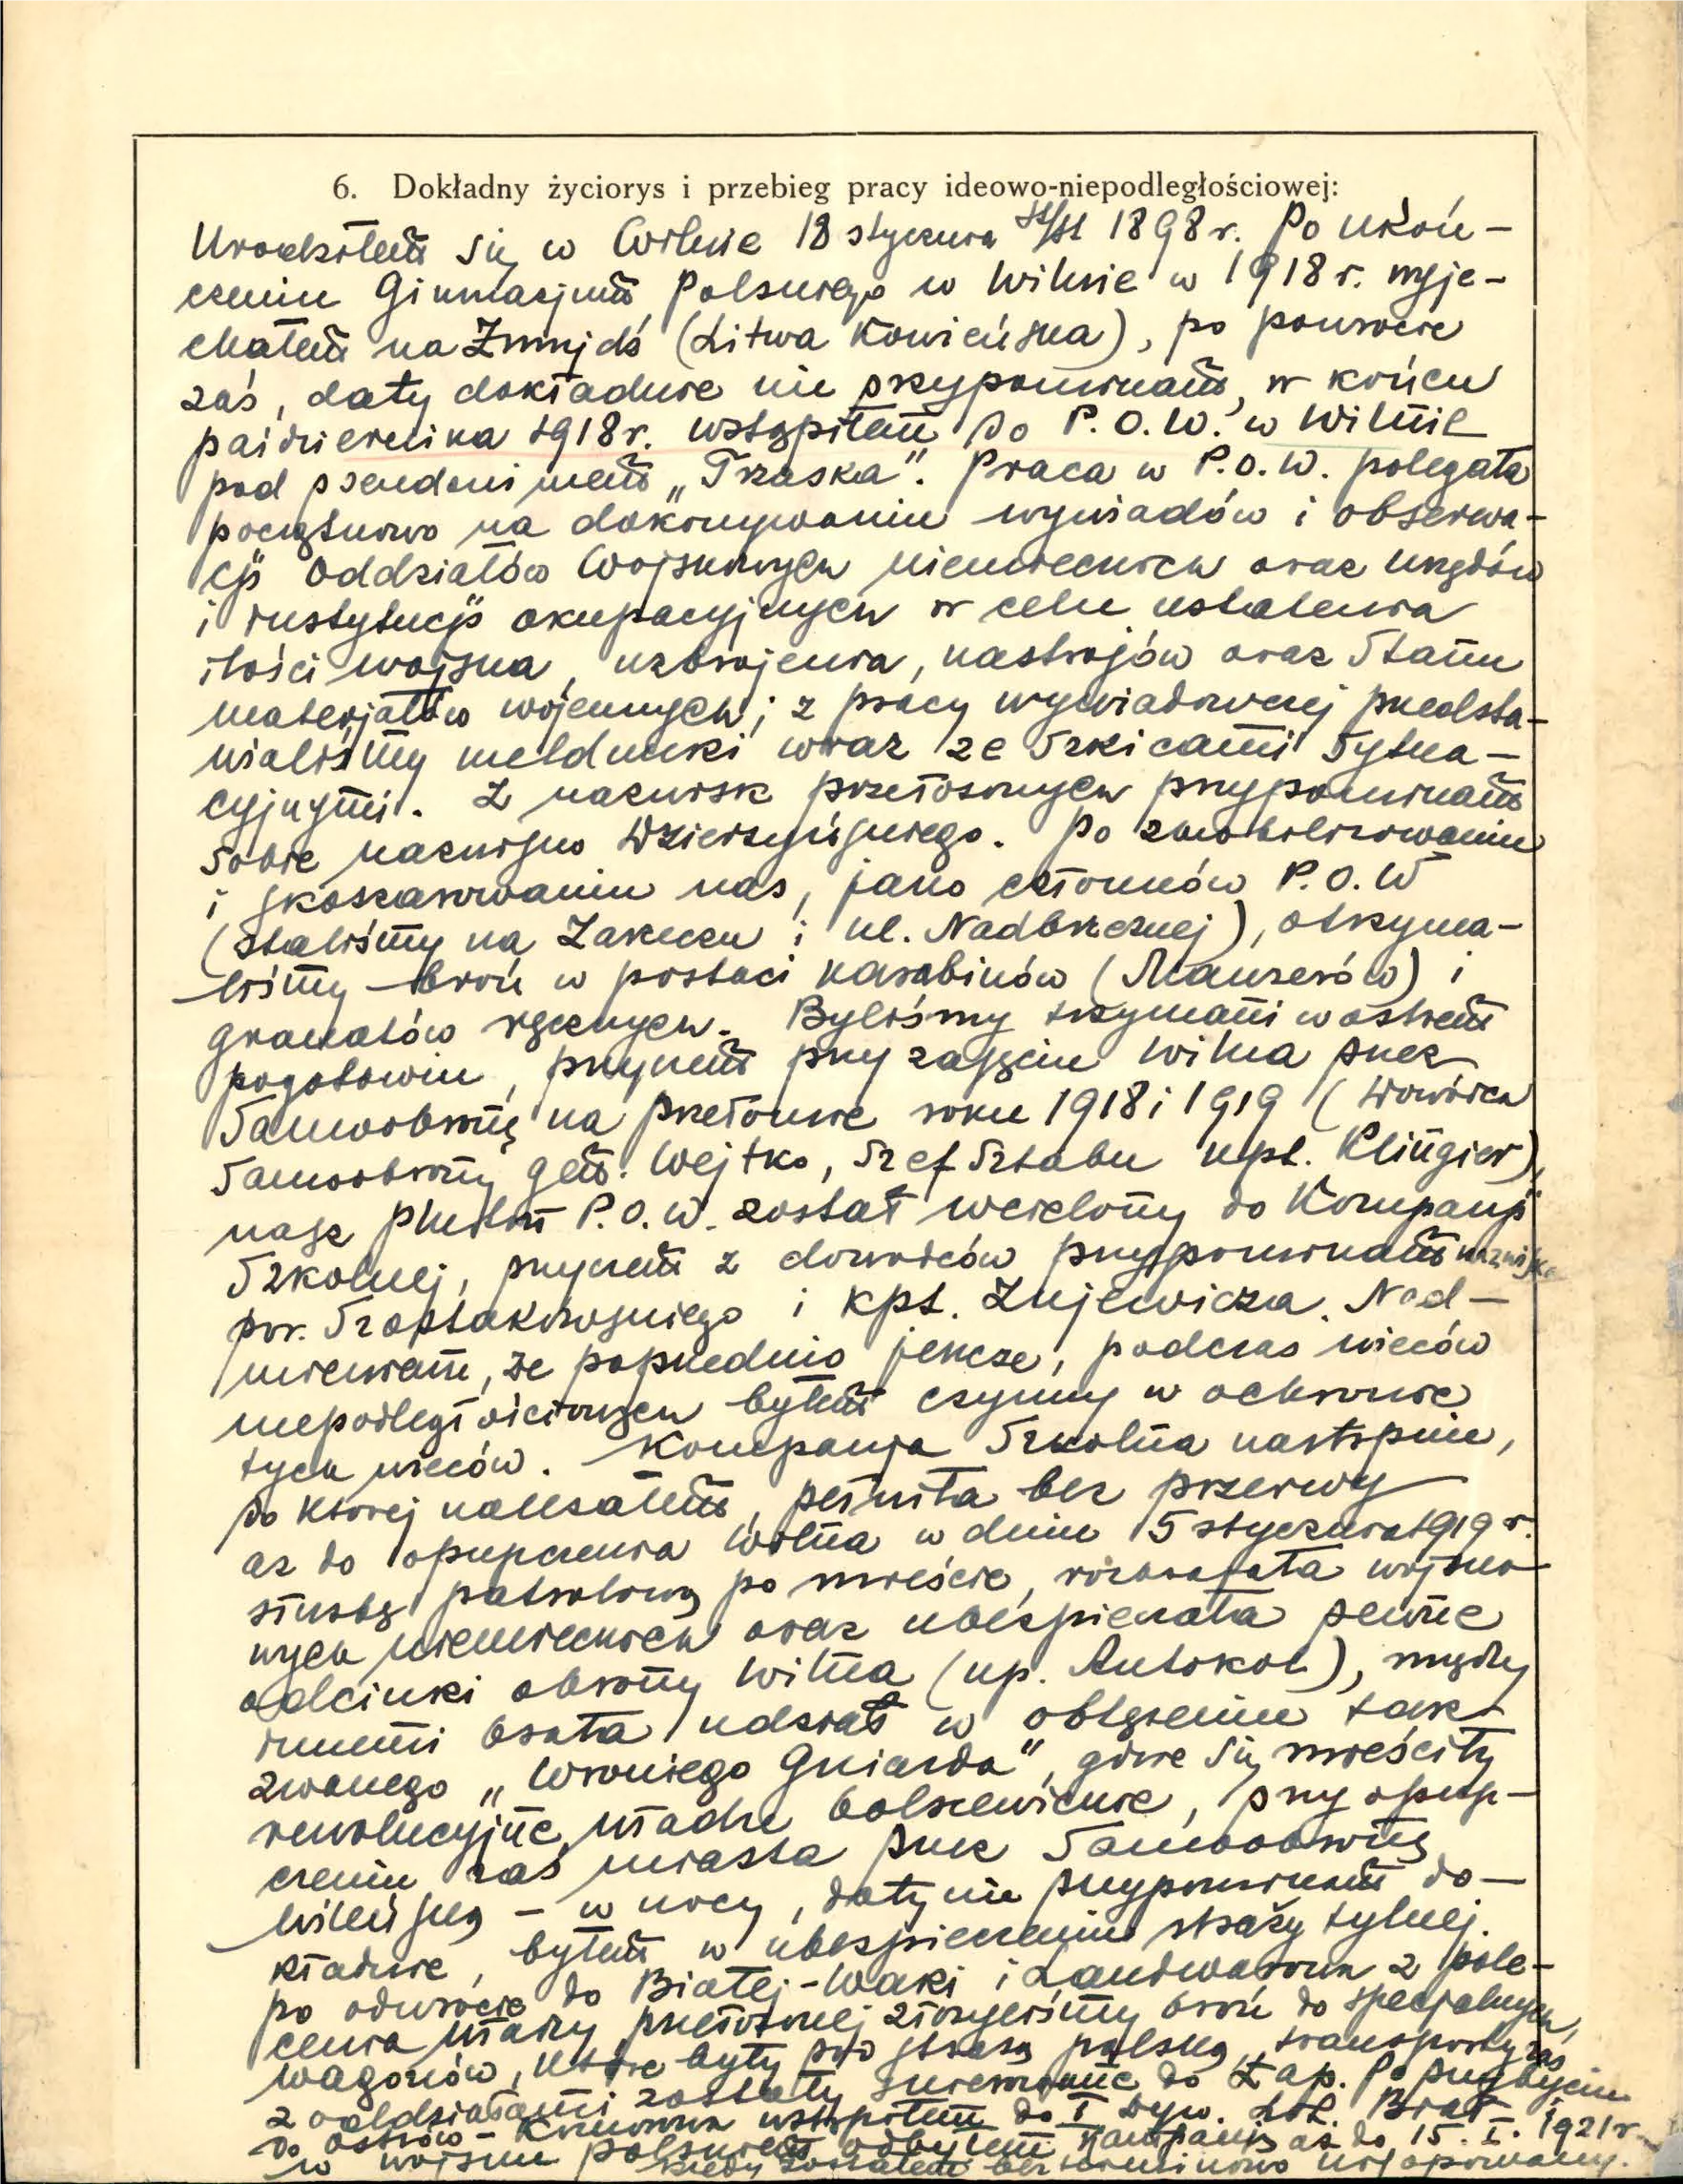 6. Dokładny życiorys i przebieg pracy ideowo-niepodległościowej:
Urodziłem się w Wilnie 18 stycznia 1898 r. Po ukoń-
czeniu Gimnazjum Polskiego w Wilnie w 1918 r. wyje-
chałem na Żmujdź (Litwa Kowieńska), po powrocie
zaś, daty dokładnie nie przypominam, w końcu
października 1918 r. wstąpiłem do P.O.W. w Wilnie
pod pseudonimem „Trzaska". Praca w P.O.W. polegała
początkowo na dokonywaniu wywiadów i obserwa-
cji oddziałów wojskowych niemieckich oraz urzędów
i instytucji okupacyjnych w celu ustalenia
ilości wojska, uzbrojenia, nastrojów oraz stanu
materjałów wojennych; z pracy wywiadowczej przedsta-
wialiśmy meldunki wraz ze szkicami sytua-
cyjnymi. Z nazwisk przełożonych przypominam
sobie nazwisko Dzierżyńskiego. Po zmobilizowaniu
i skoszarowaniu nas, jako członków P.O.W
(staliśmy na Zarzeczu i ul. Nadbrzeżnej), otrzyma-
liśmy broń w postaci karabinów (Mauzerów) i
granatów ręcznych. Byliśmy trzymani w ostrem
pogotowiu, przyczem przy zajęciu Wilna przez
Samoobronę na przełomie roku 1918 i 1919 (Dowódca
Samoobrony gen. Wejtko, Szef Sztabu kpt. Klingier),
nasz pluton P.O.W. został wcielony do Kompanji
Szkolnej, przyczem z dowódców przypominam nazwiska
por. Szostakowskiego i kpt. Zujewicza. Nad-
mieniam, że poprzednio jeszcze, podczas wieców
niepodległościowych byłem czynny w ochronie
tych wieców. Kompanja Szkolna następnie,
do której należałem, pełniła bez przerwy
aż do opuszczenia Wilna w dniu 5 stycznia 1919 r.
służbę patrolową po mieście, rozbrajała wojsko-
wych niemieckich oraz ubezpieczała pewne
odcinki obrony Wilna (np. Antokol), między
innemi brała udział w oblężeniu tak
zwanego „Wroniego Gniazda", gdzie się mieściły
rewolucyjne władze bolszewickie, przy opusz-
czeniu zaś miasta przez Samoobronę
Wileńską - w nocy, daty nie przypominam do-
kładnie, byłem w ubezpieczeniu straży tylnej.
po odwrocie do Białej-Waki i Landwarowa z pole-
cenia władzy przełożonej złożyliśmy broń do specjalnych
wagonów, które były pod strażą polską, transporty zaś
z oddziałami zostały skierowane do Łap. Po przybyciu
do Ostrów-Komorowa wstąpiłem do I Dyw. Lit. Biał.
w wojsku polskiem odbyłem kampanję aż do 15.I.1921 r.
kiedy zostałem bezterminowo urlopowany.